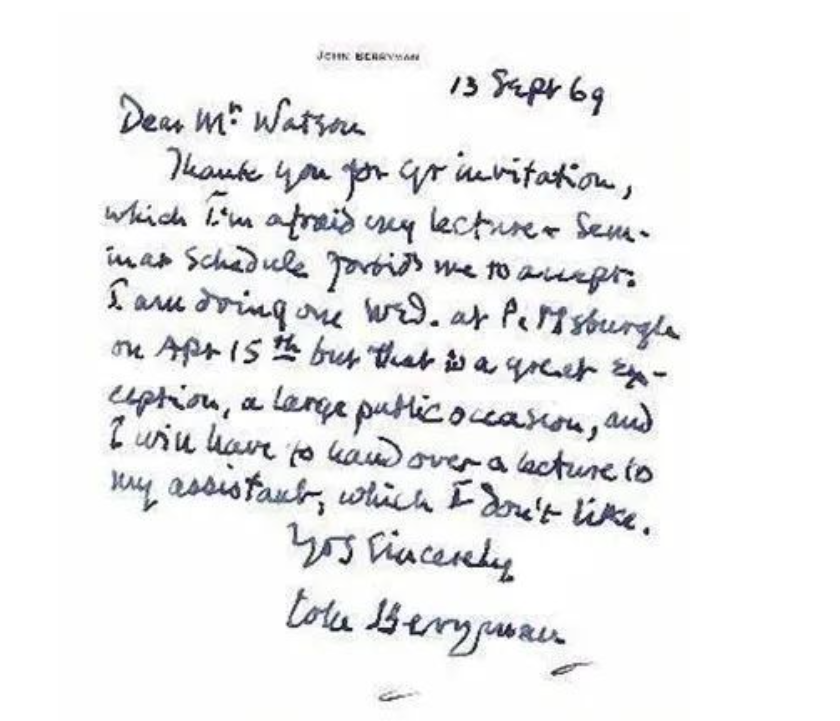 JOHN BERRYMAN
13 Sept 69
Dear Mr. Watson
Thank you for yr invitation,
which I'm afraid my lecture & Sem-
inar Schedule forbids me to accept.
I am doing one Wed. at Pittsburgh
on Apr 15th but that is a great ex-
ception, a large public occasion, and
I will have to hand over a lecture to
my assistant, which I don't like.
Yrs Sincerely
John Berryman